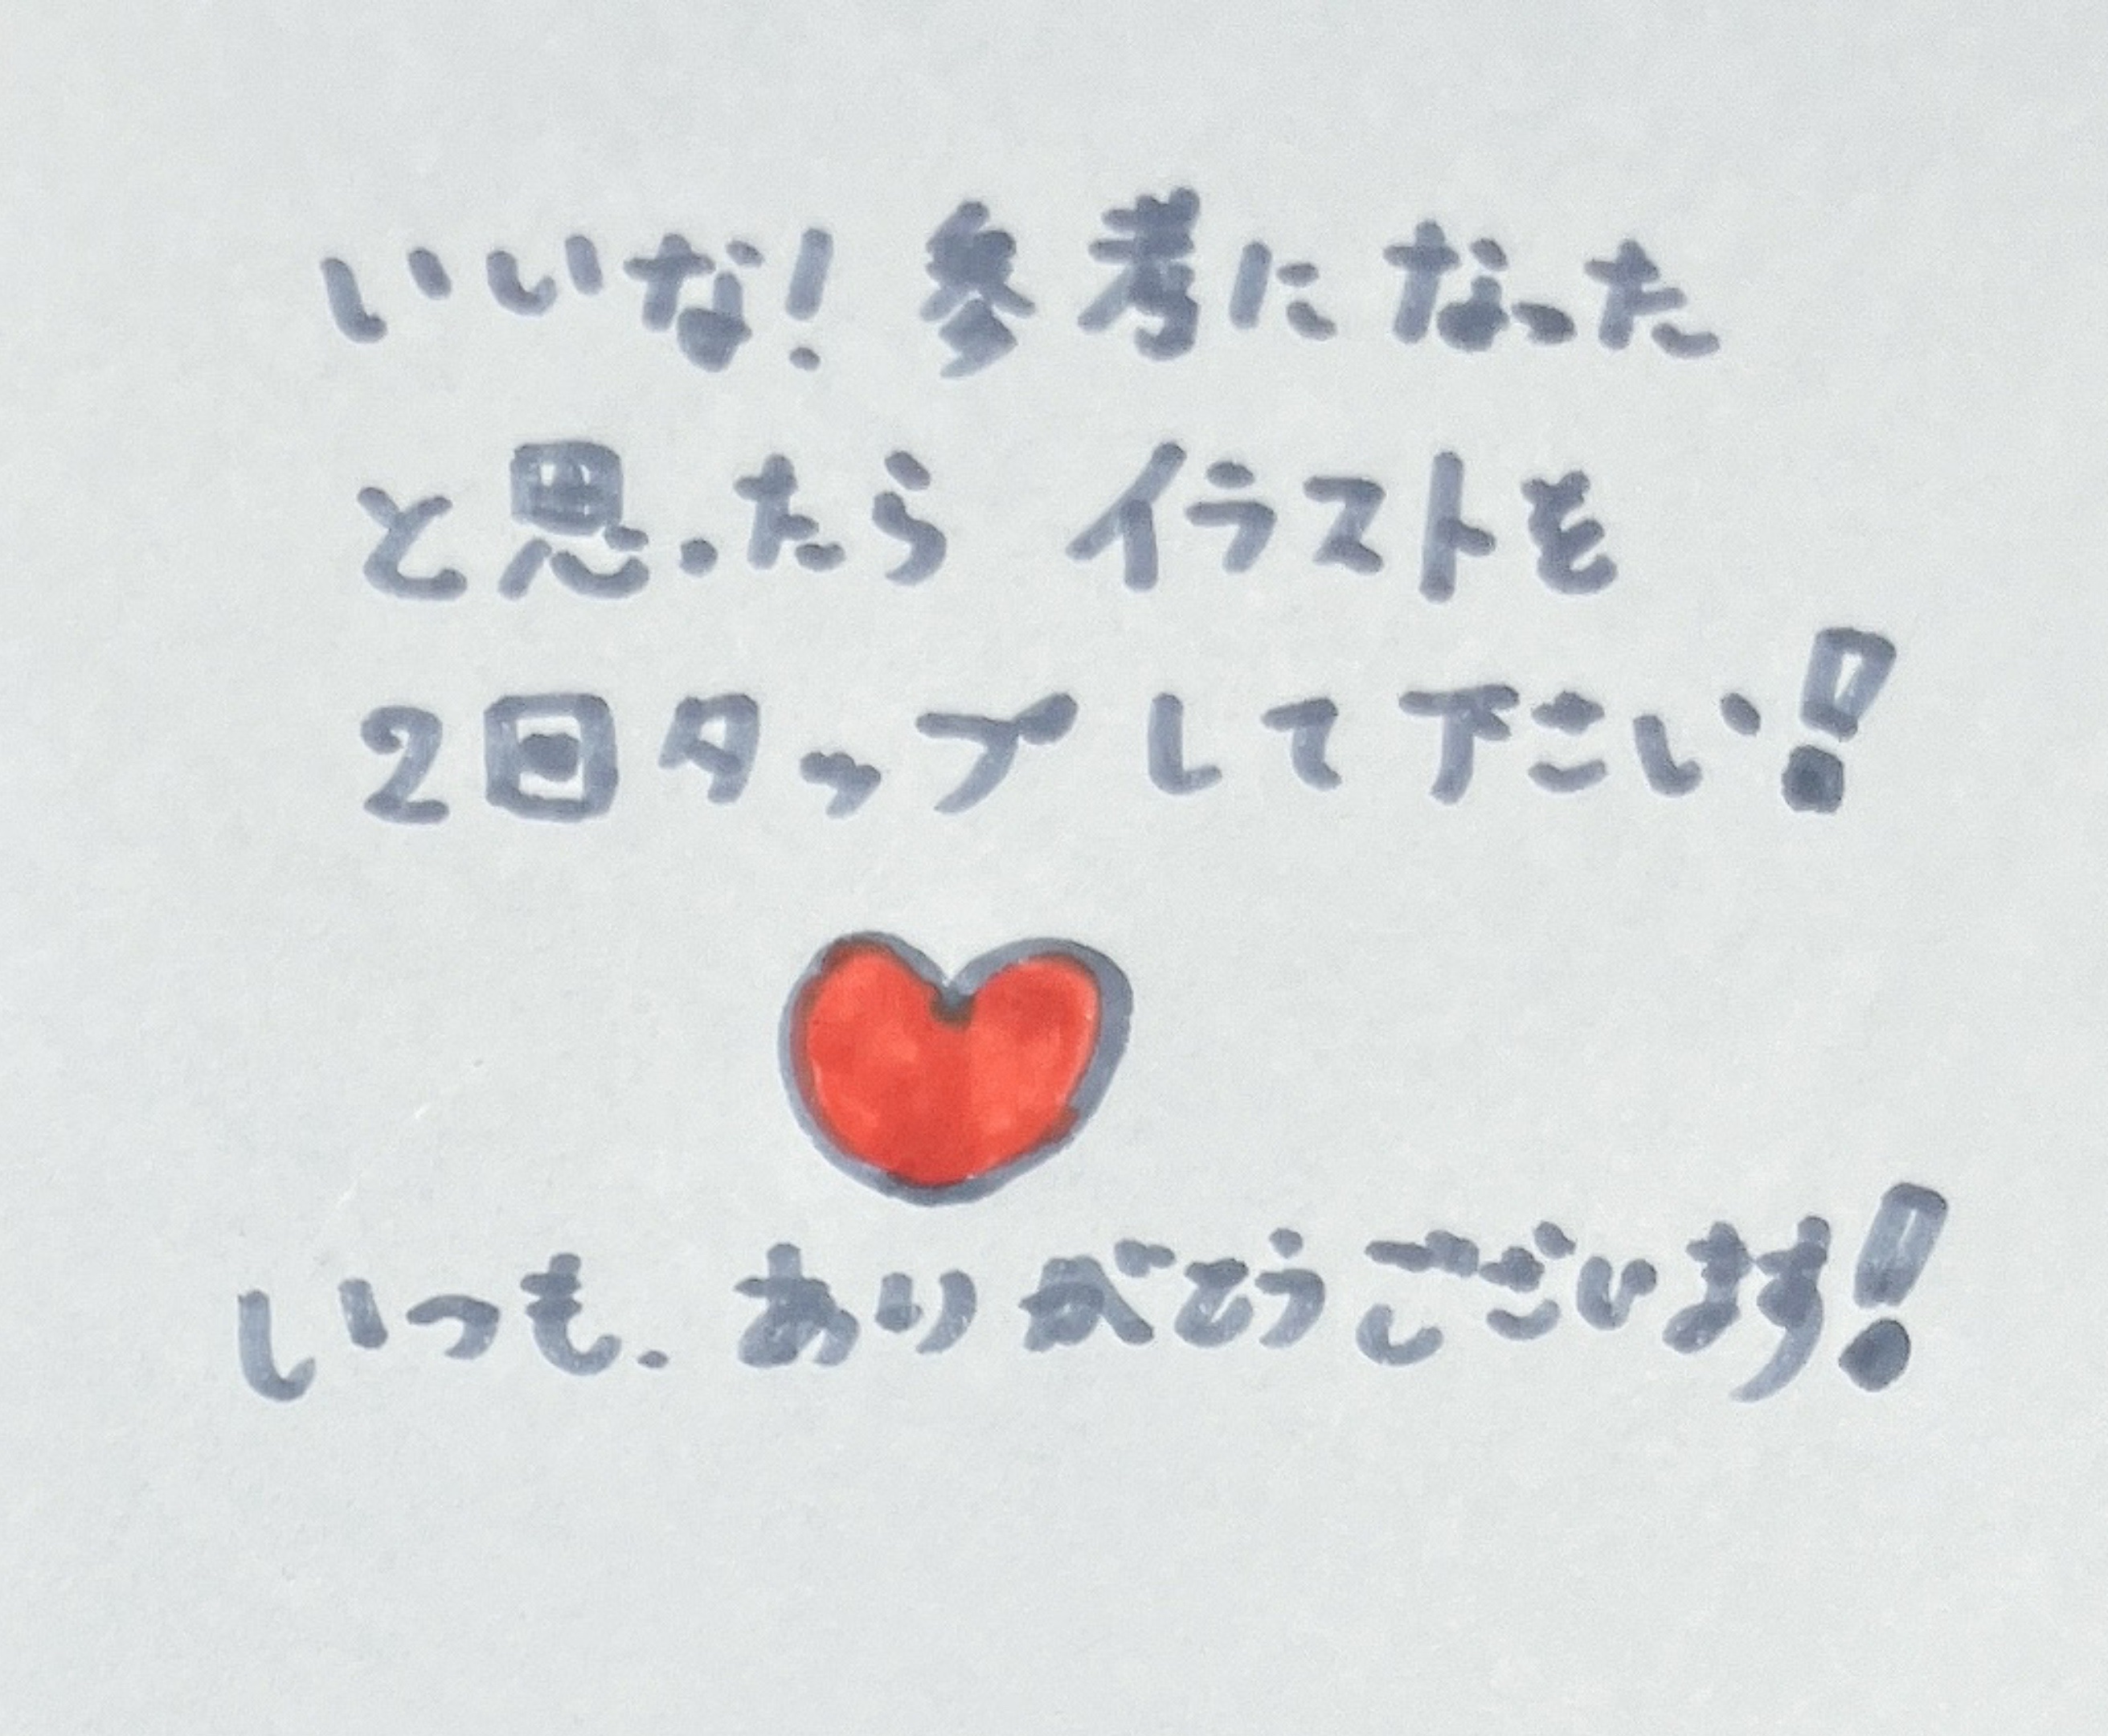 いいな! 参考になった
と思ったら イラストを
2回タップして下さい!
いつも、ありがとうございます!